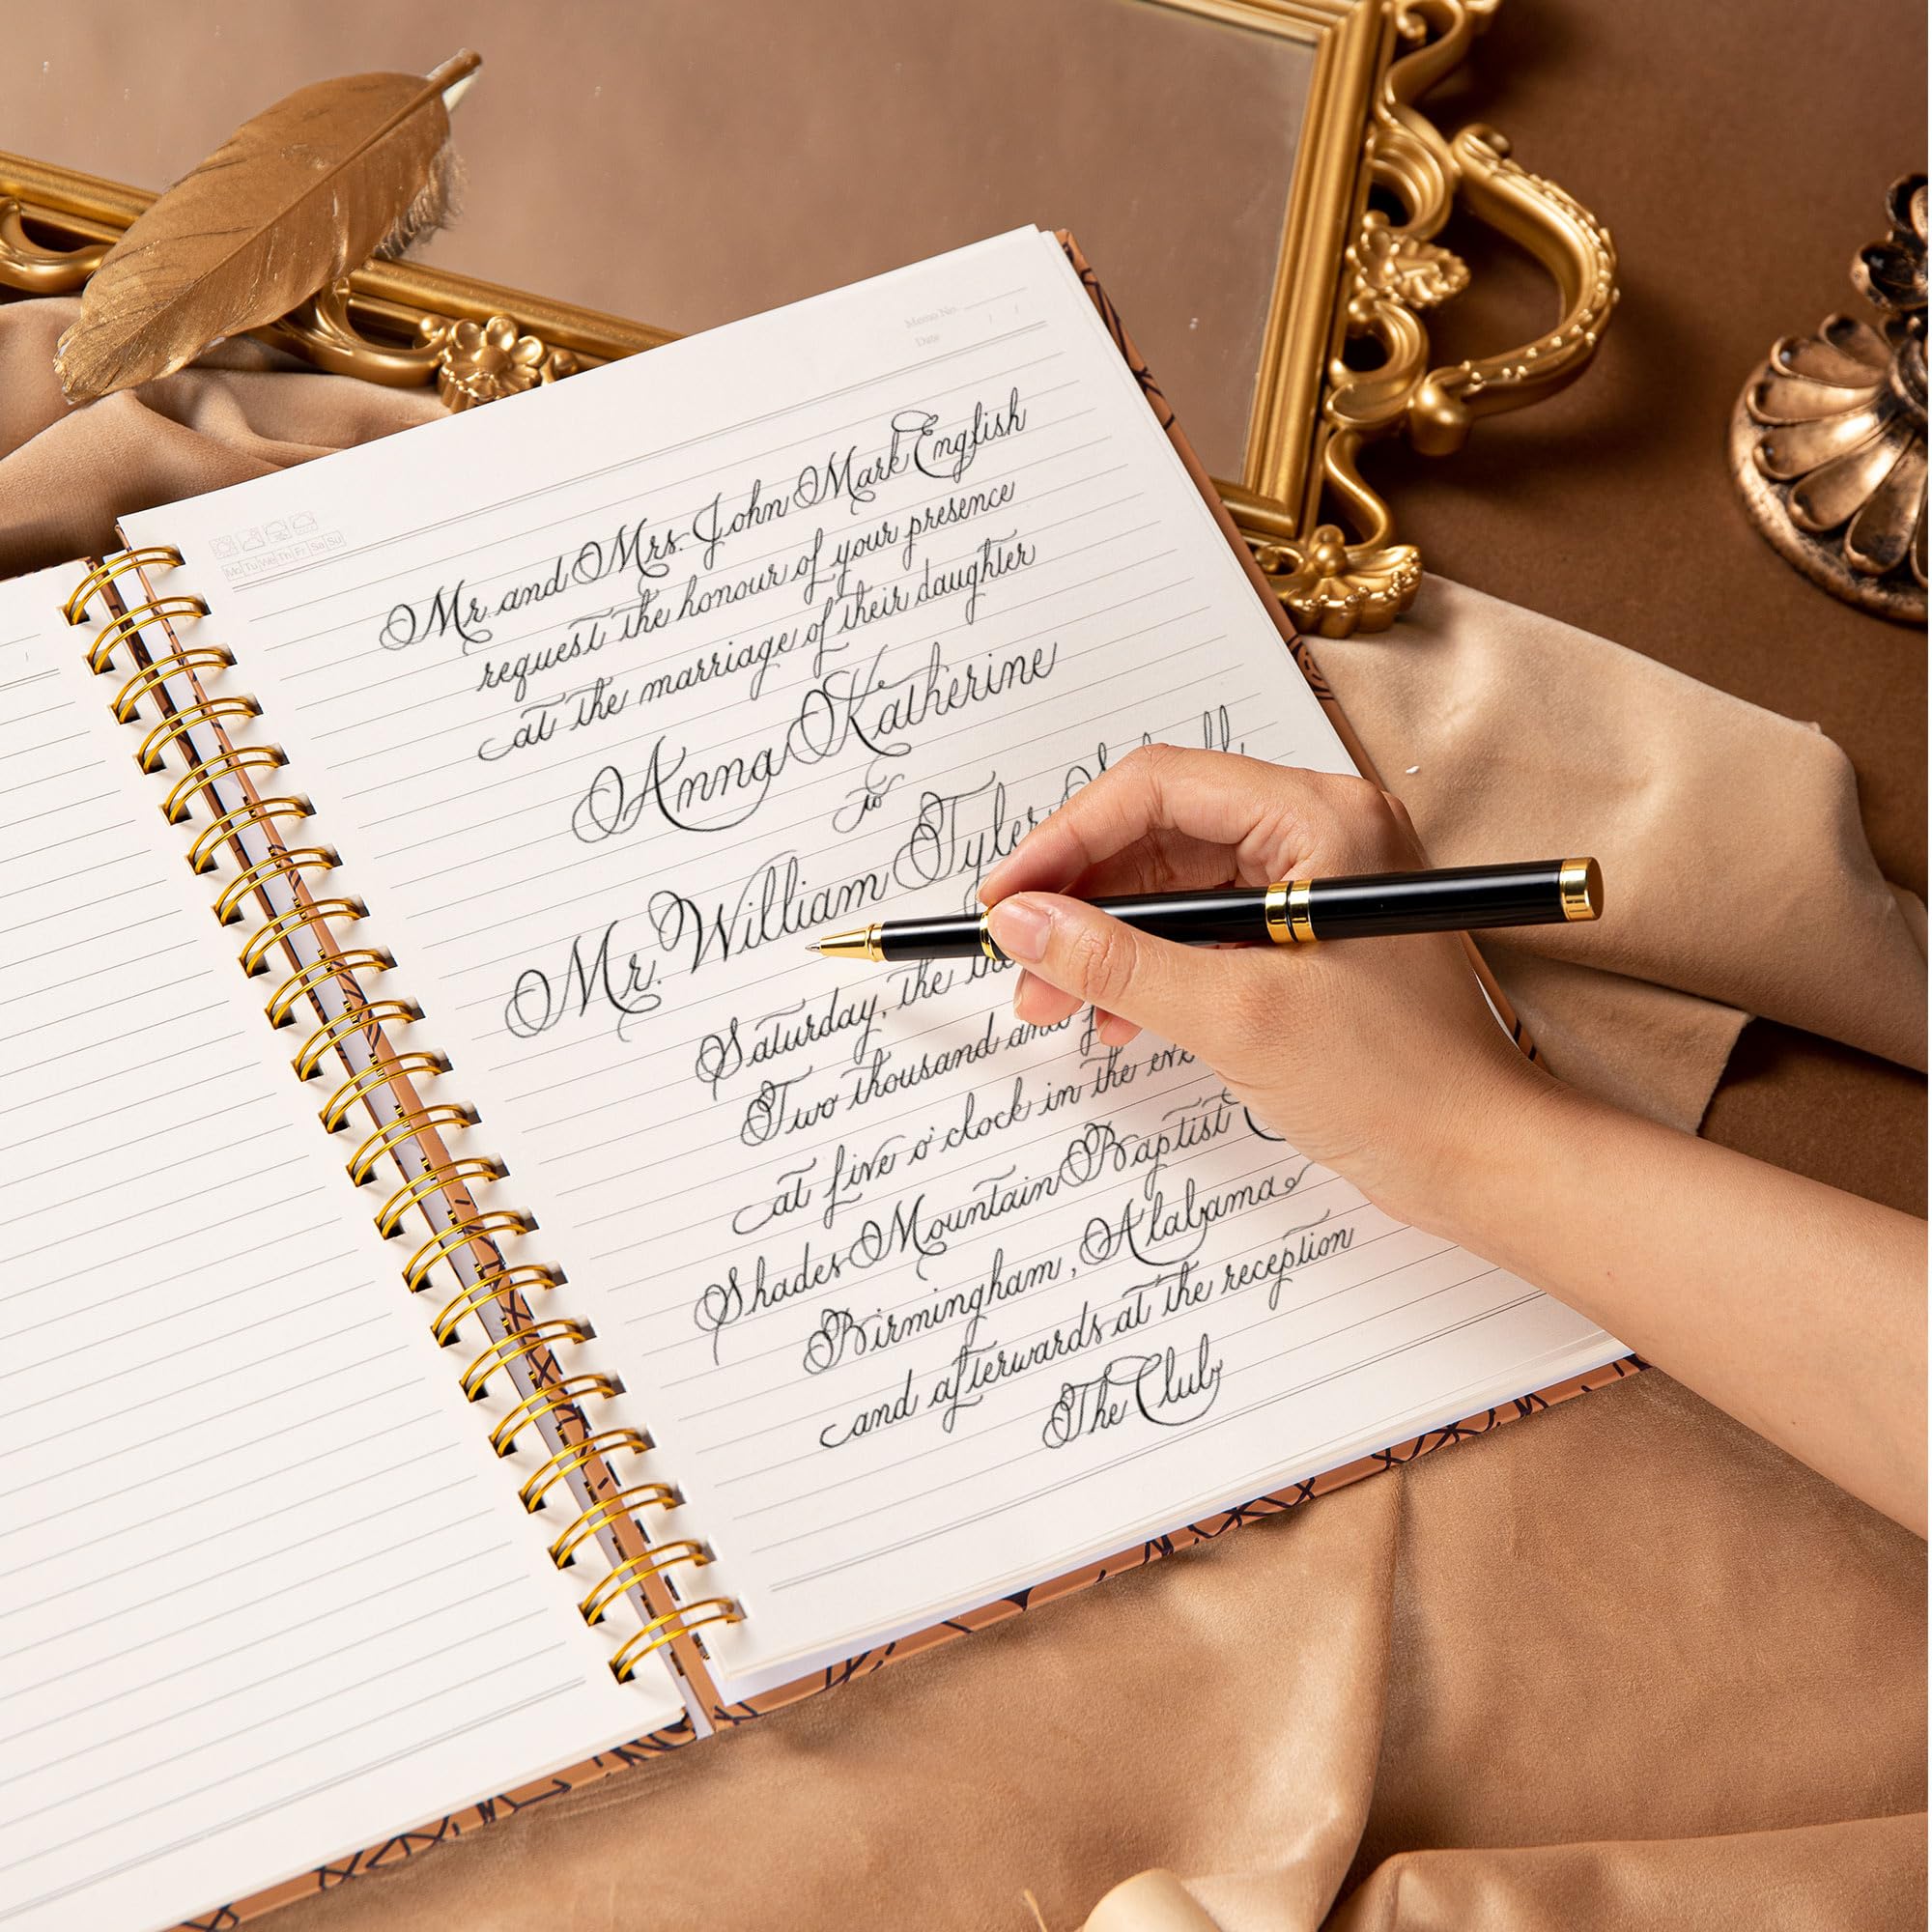 Memo No.
Date
Mo Tu We Th Fr Sa Su
Mr. and Mrs. John Mark English
request the honour of your presence
at the marriage of their daughter
Anna Katherine
to
Mr. William Tyler
Saturday, the
Two thousand and
at five o'clock in the
Shades Mountain Baptist
Birmingham, Alabama
and afterwards at the reception
The Club